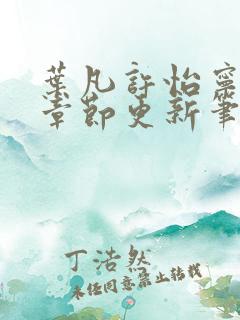 葉凡許怡寧
章節更新筆
丁浩然
未经同意禁止转载